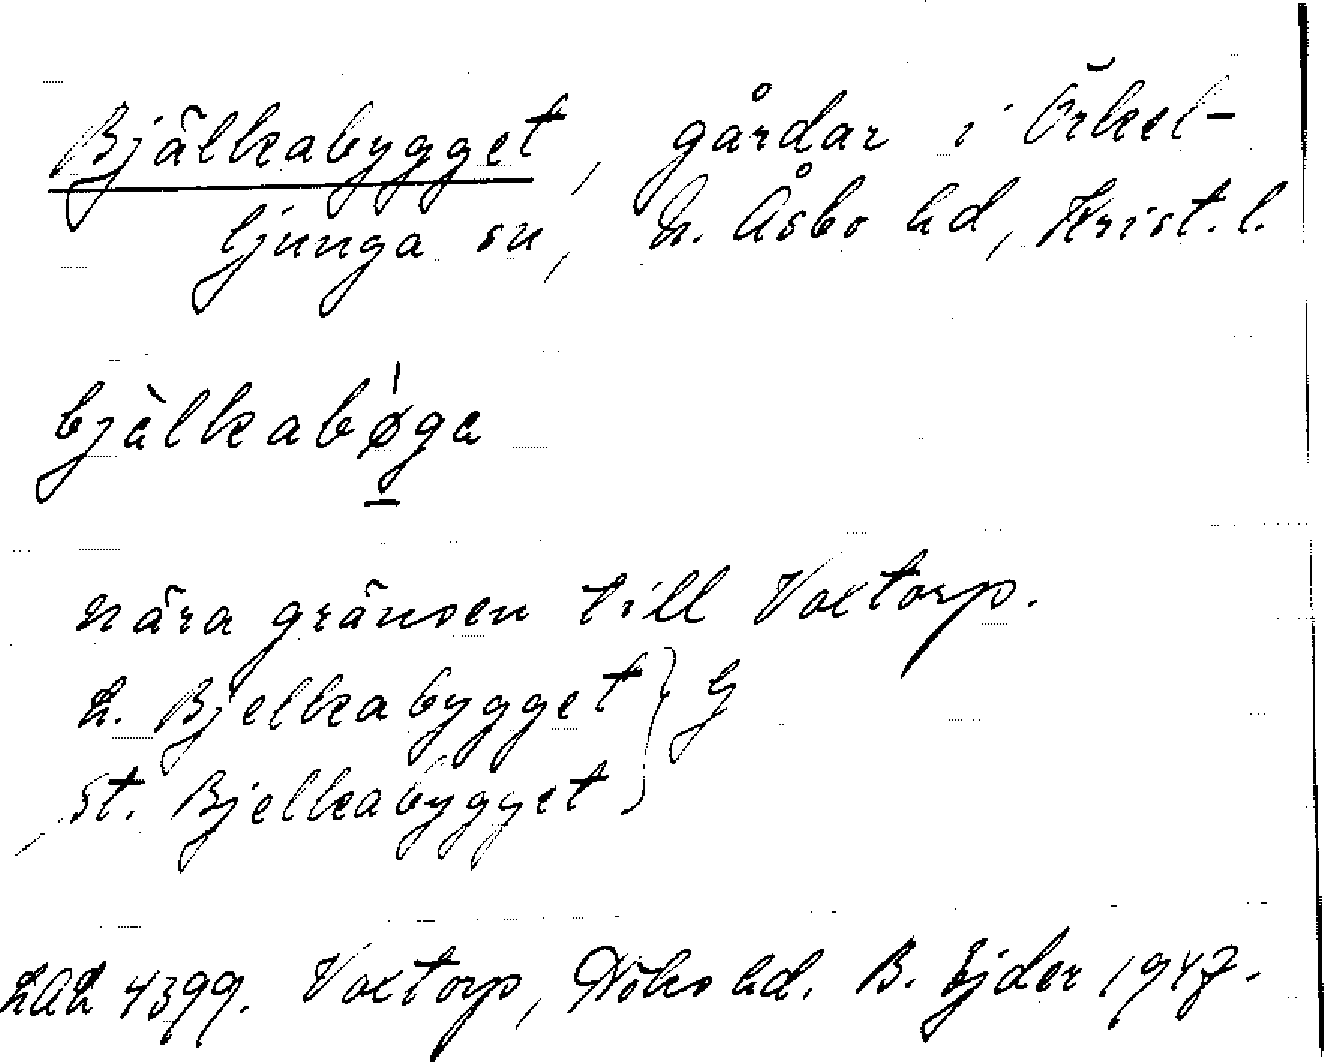 Bjälkabygget, gårdar i Örkel-
ljunga sn, N. Åsbo hd, Krist. l.
bjälkabøga
nära gränsen till Voxtorp.
L. Bjelkabygget } G
St. Bjelkabygget
LAL 4399. Voxtorp, Höks hd. B. Ejder 1947.